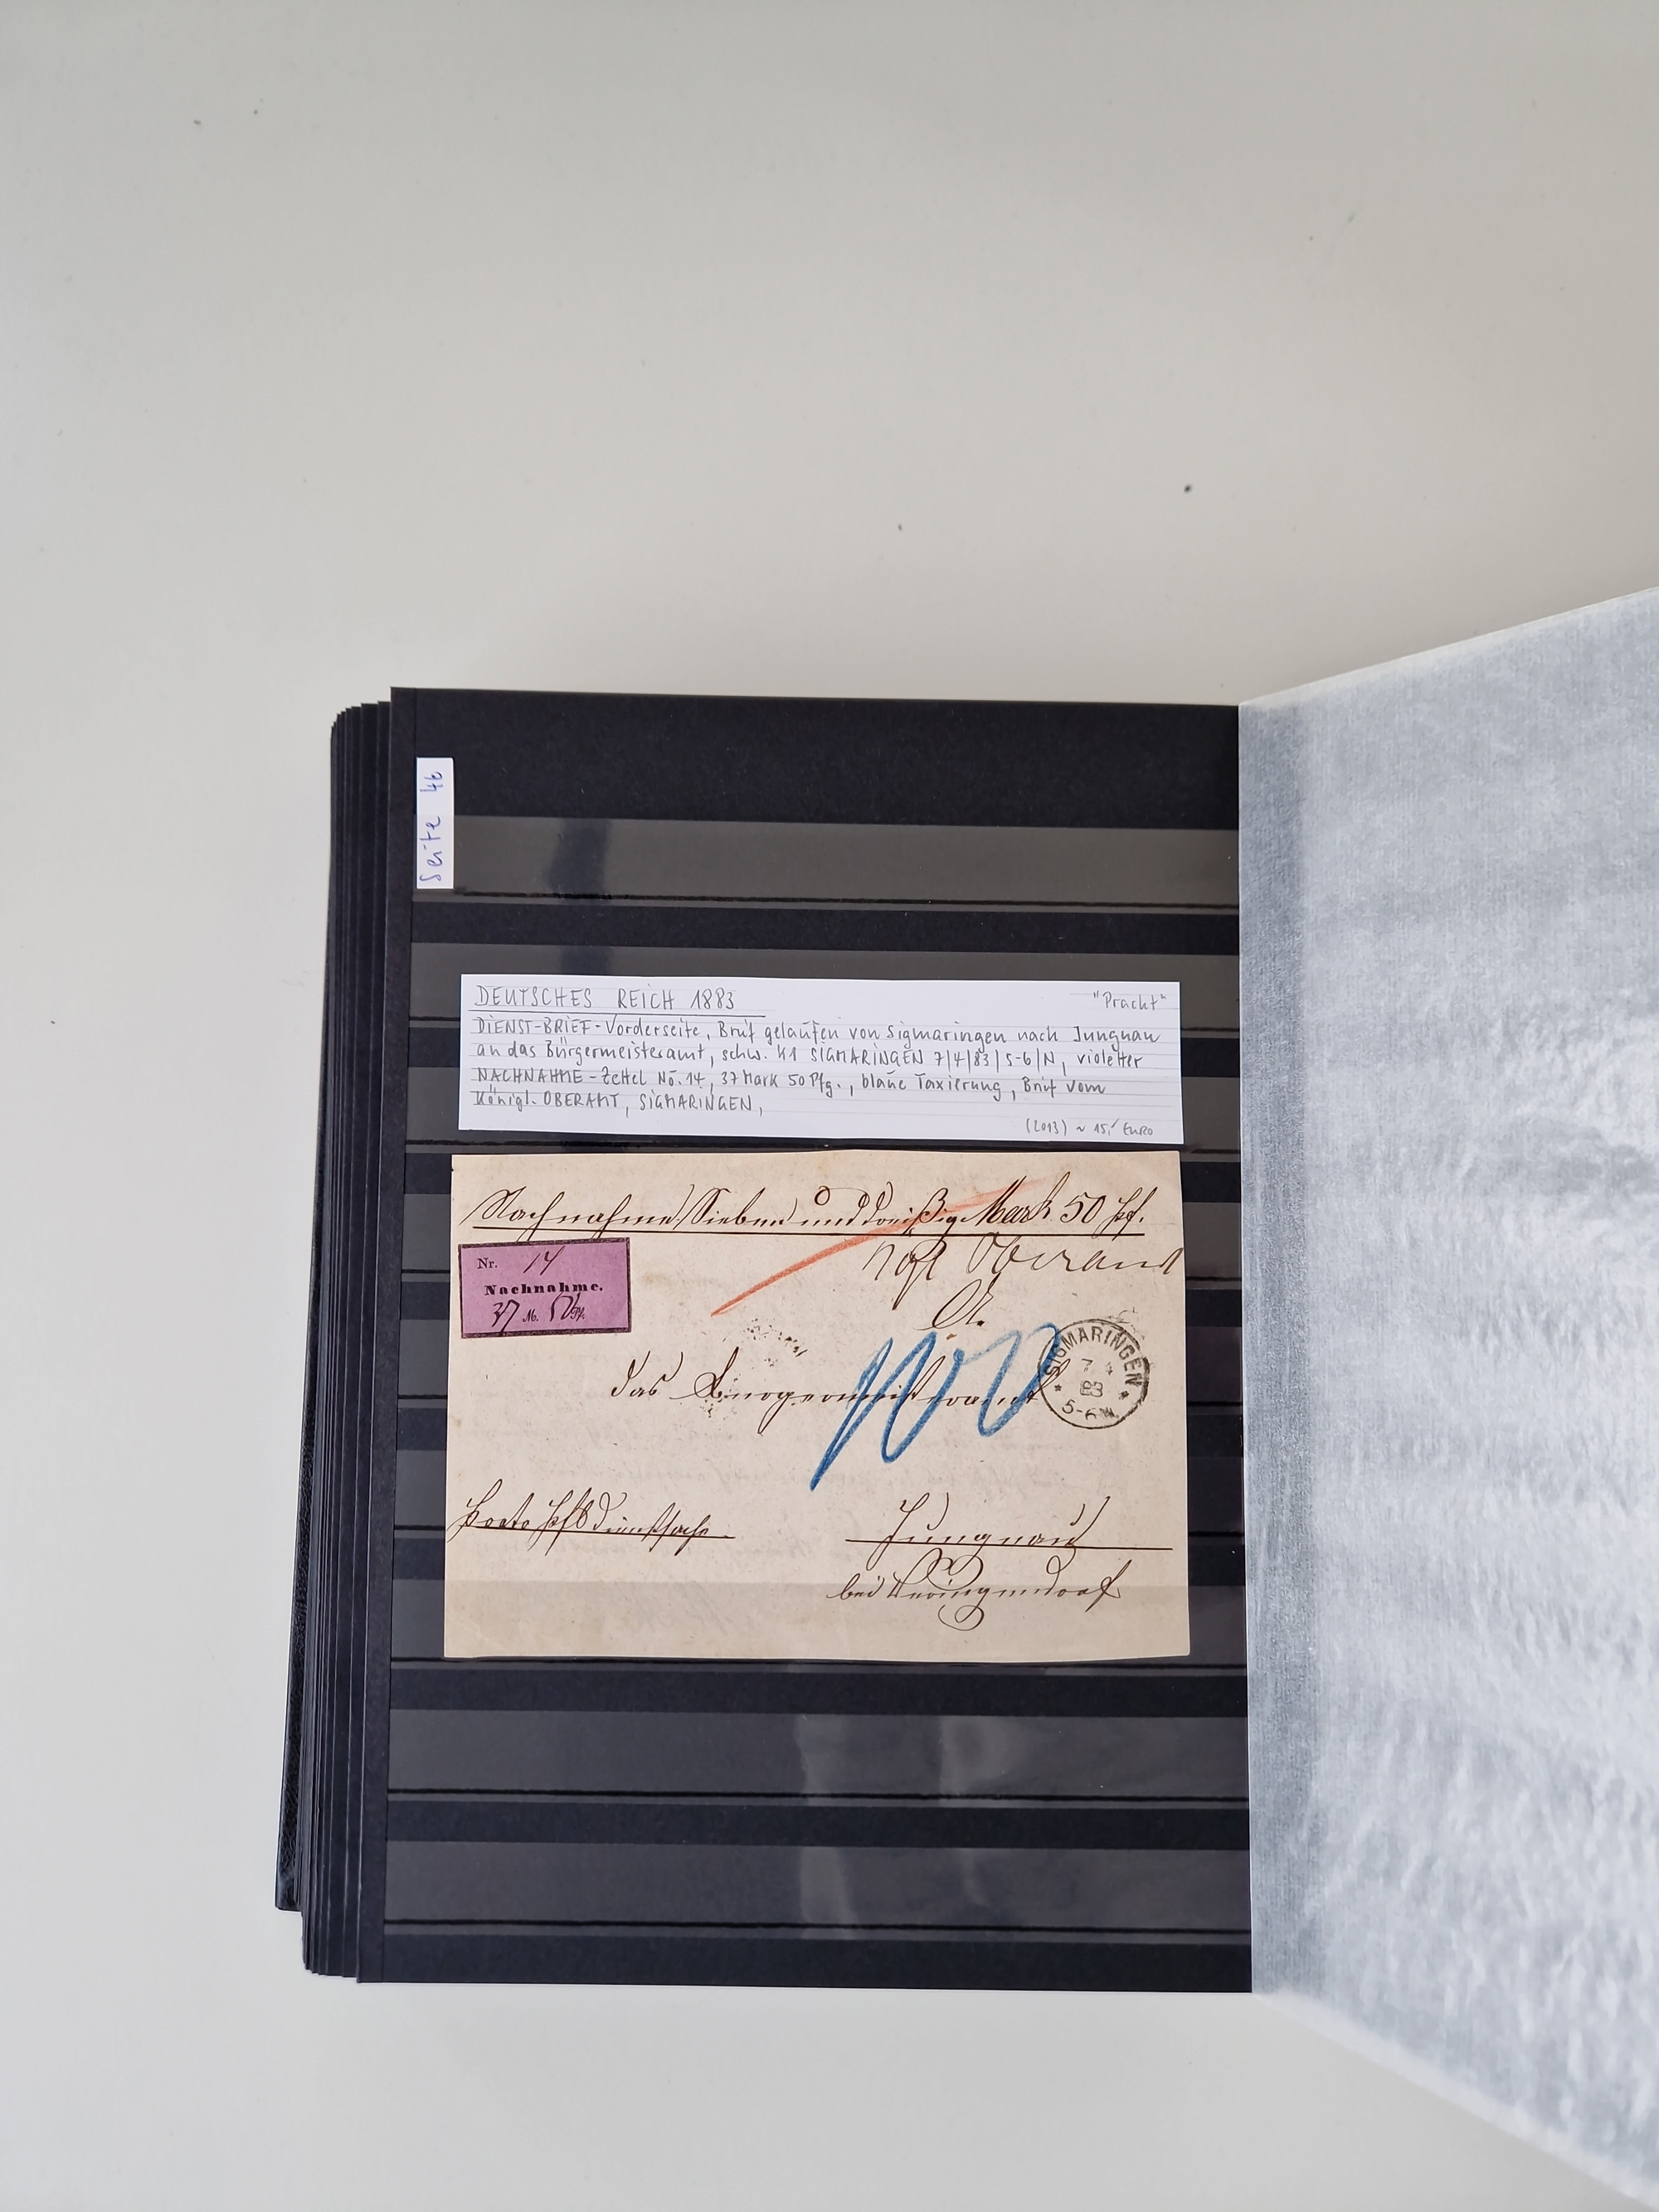 Seite 46
DEUTSCHES REICH 1883
"Pracht"
DIENST-BRIEF-Vorderseite, Brief gelaufen von Sigmaringen nach Jungnau
an das Bürgermeisteramt, schw. K1 SIGMARINGEN 7/4/83/5-6/N, violetter
NACHNAHME-Zettel No. 14, 37 Mark 50 Pfg., blaue Taxierung, Brief vom
Königl. OBERAMT, SIGMARINGEN,
(2013) ~ 15,- EURO
Nachnahme Sieben und dreißig Mark 50 Pf.
Nr. 14
Nachnahme.
37 M. 50 Pf.
Kgl Oberamt
An
das Bürgermeisteramt
SIGMARINGEN
7 4
83
5-6 N
Porto Pfl. Dienstsache
Jungnau
bei Veringendorf